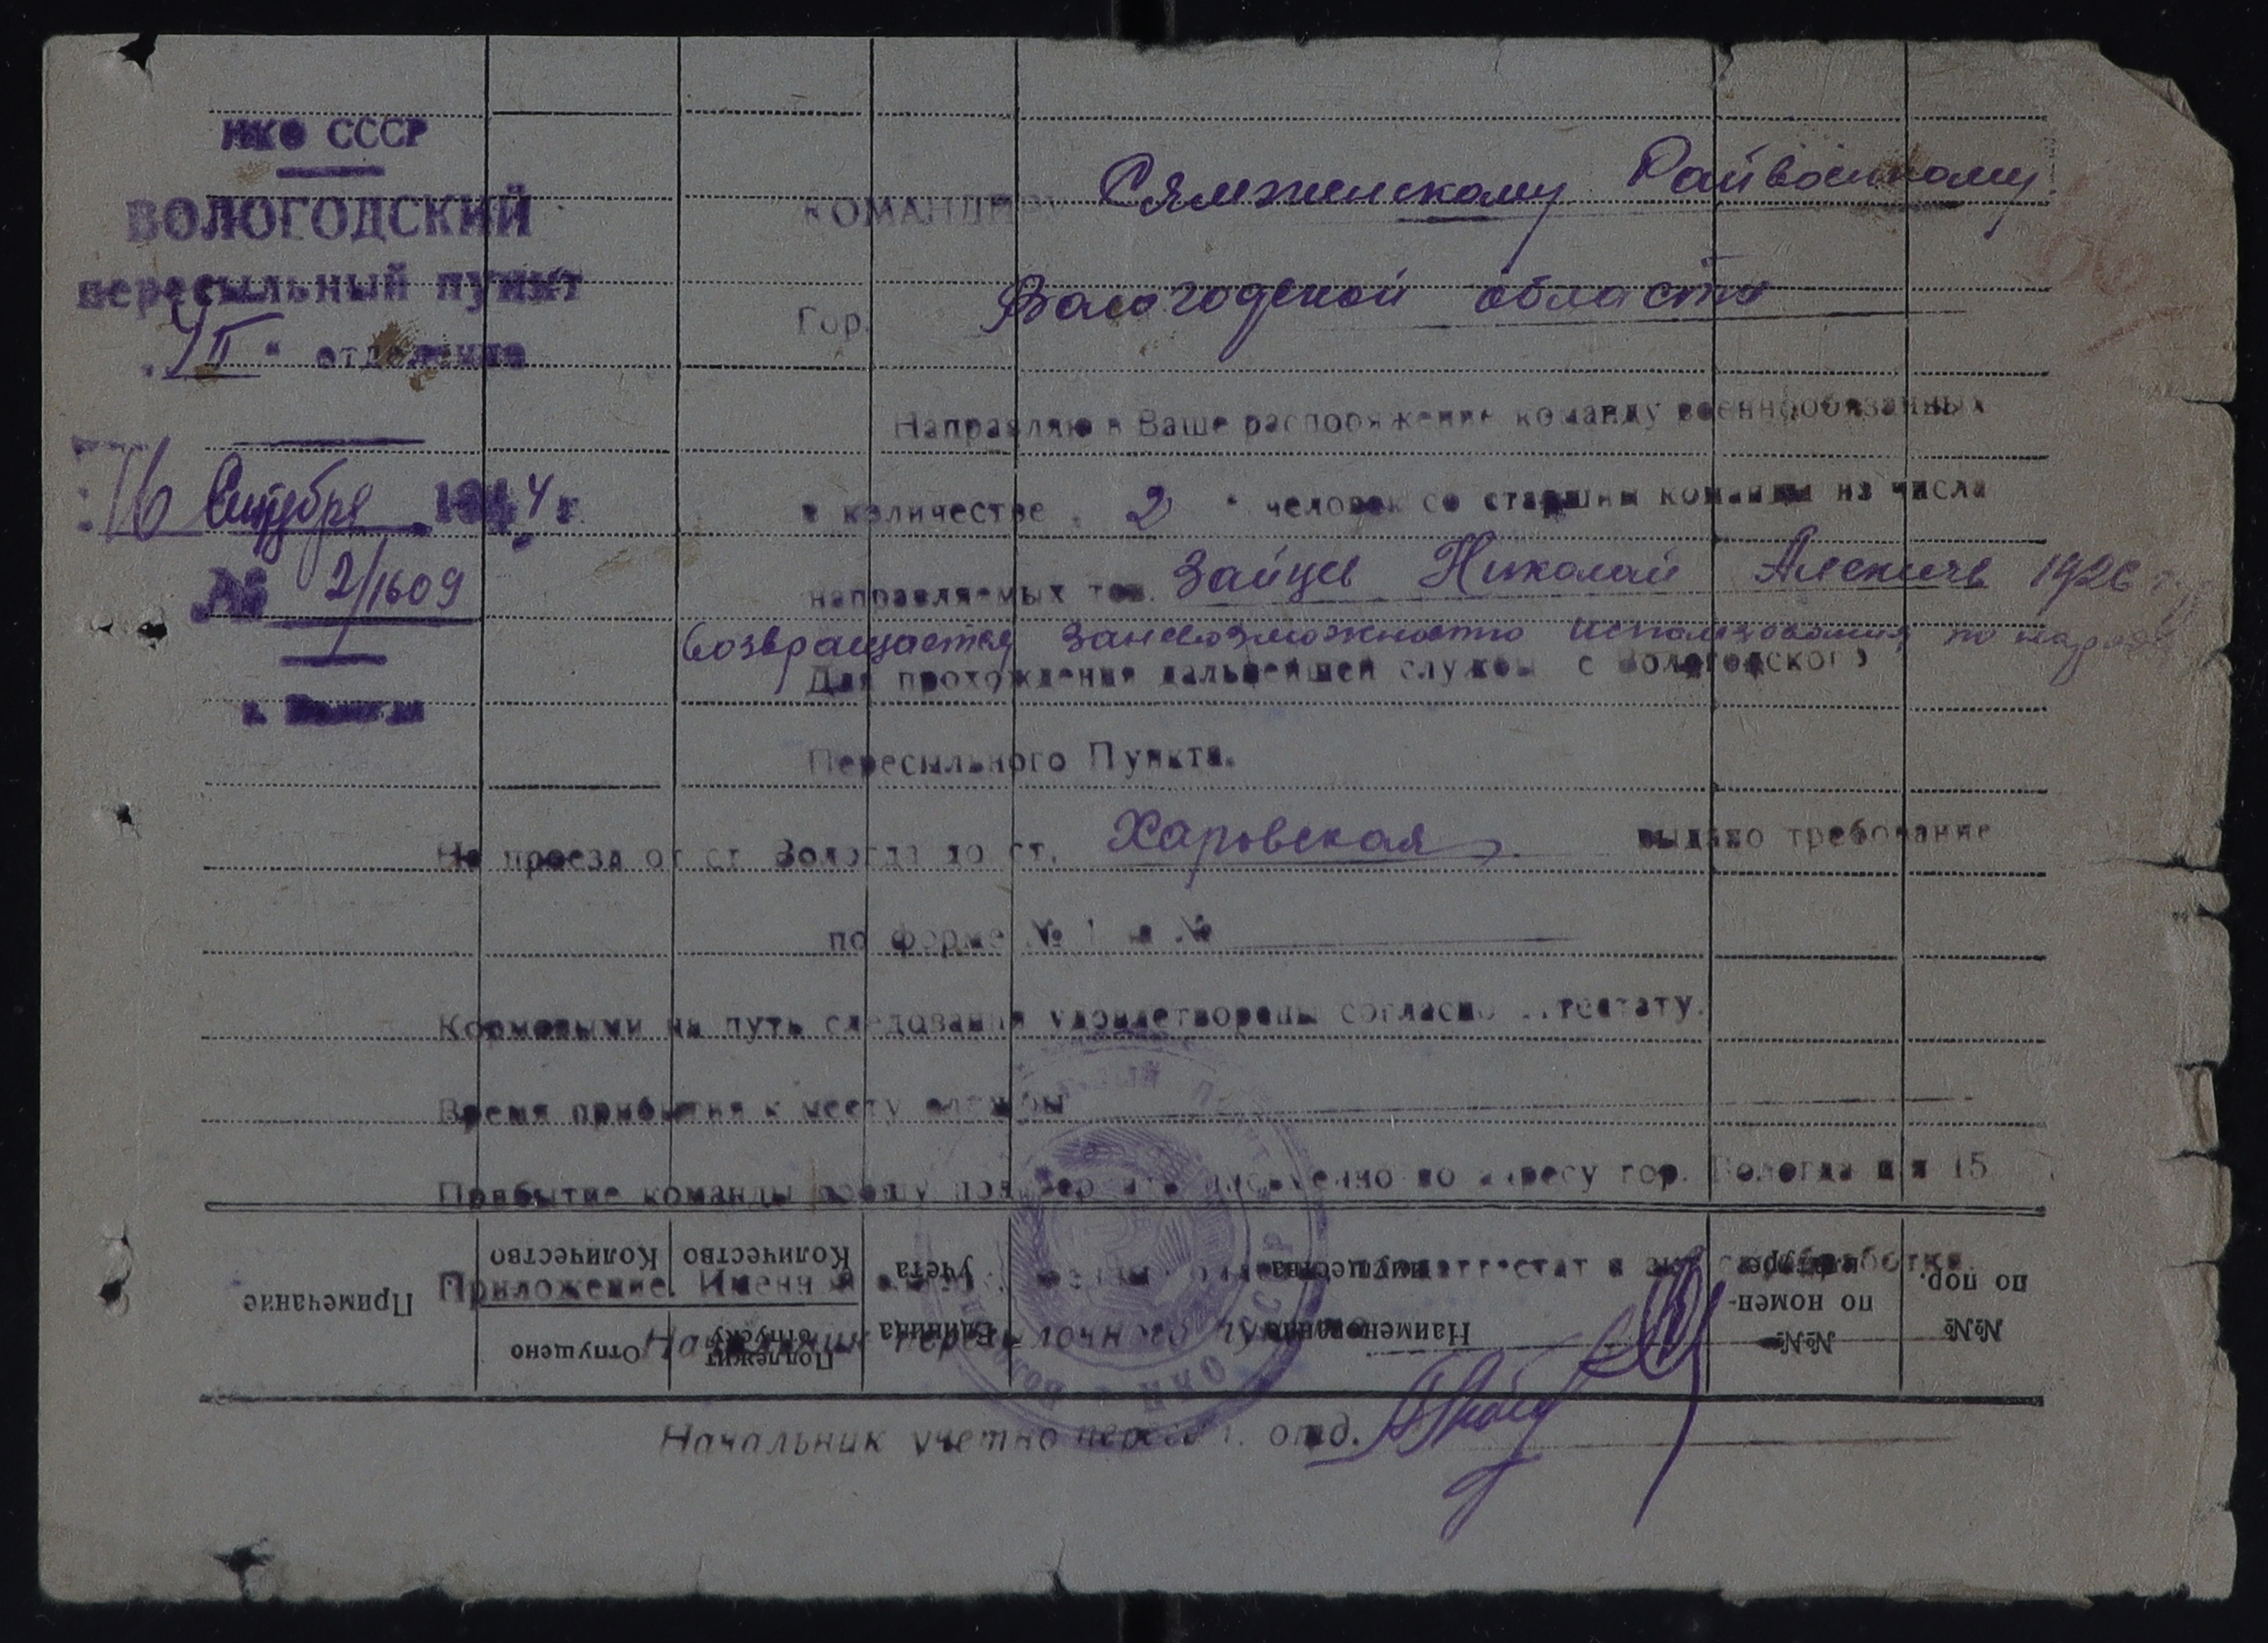 НКО СССР
ВОЛОГОДСКИЙ
пересыльный пункт
„II“ отделение
16 Сентября 1944 г.
№ 2/1609
г. Вологда
КОМАНДИРУ Сямженскому Райвоенкому
Гор. Вологодской области
Направляю в Ваше распоряжение команду военнообязанных
в количестве „ 2 “ человек со старшим команды из числа
направляемых тов. Зайцев Николай Алексичь 1926
возвращается заневозможностю использования по
Для прохождения дальнейшей службы с Вологодского
Пересыльного Пункта.
На проезд от ст Вологда до ст. Харовская выдано требование
по форме № 1 за №
Кормовыми на путь следования удовлетворены согласно аттестату.
Время прибытия к месту службы
Прибытие команды прошу по адресу гор. Вологда п/я 15
Приложение.
Начальник пересылочного пункта
Начальник учетно пересыл. отд.
№№ по пор.
№№ по номен-
Наименование имущества
Единица учета
Подлежит отпуску
Количество
Отпущено
Количество
Примечание